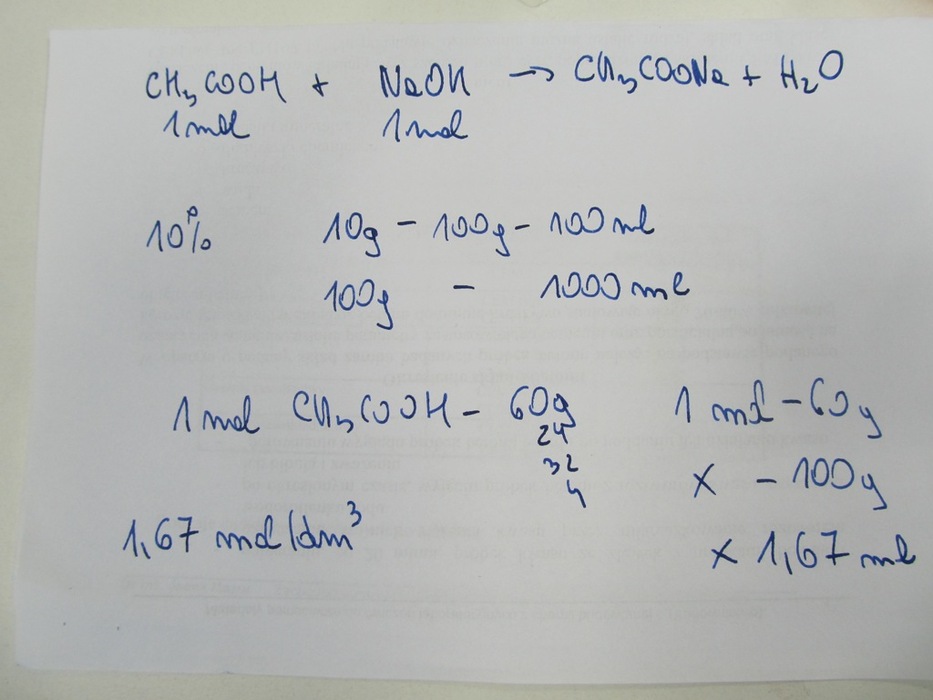 CH₃COOH + NaOH → CH₃COONa + H₂O
1mol 1mol
10% 10g - 100g - 100ml
100g - 1000ml
1mol CH₃COOH - 60g 1 mol - 60g
24
32 x - 100g
4
1,67 mol/dm³ x 1,67 ml